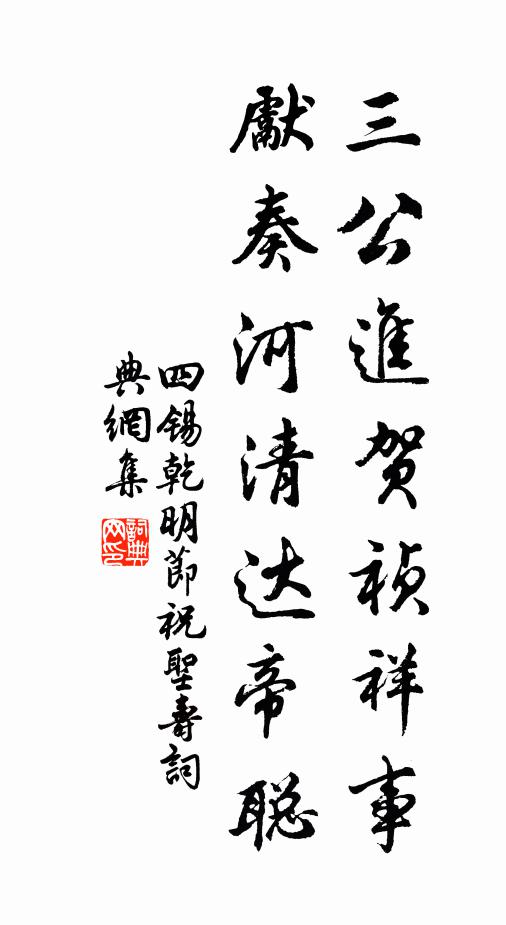 三公進賀祯祥事
獻奏河清达帝聪
四锡乾明節祝聖壽詞
典網集
詞典
网印